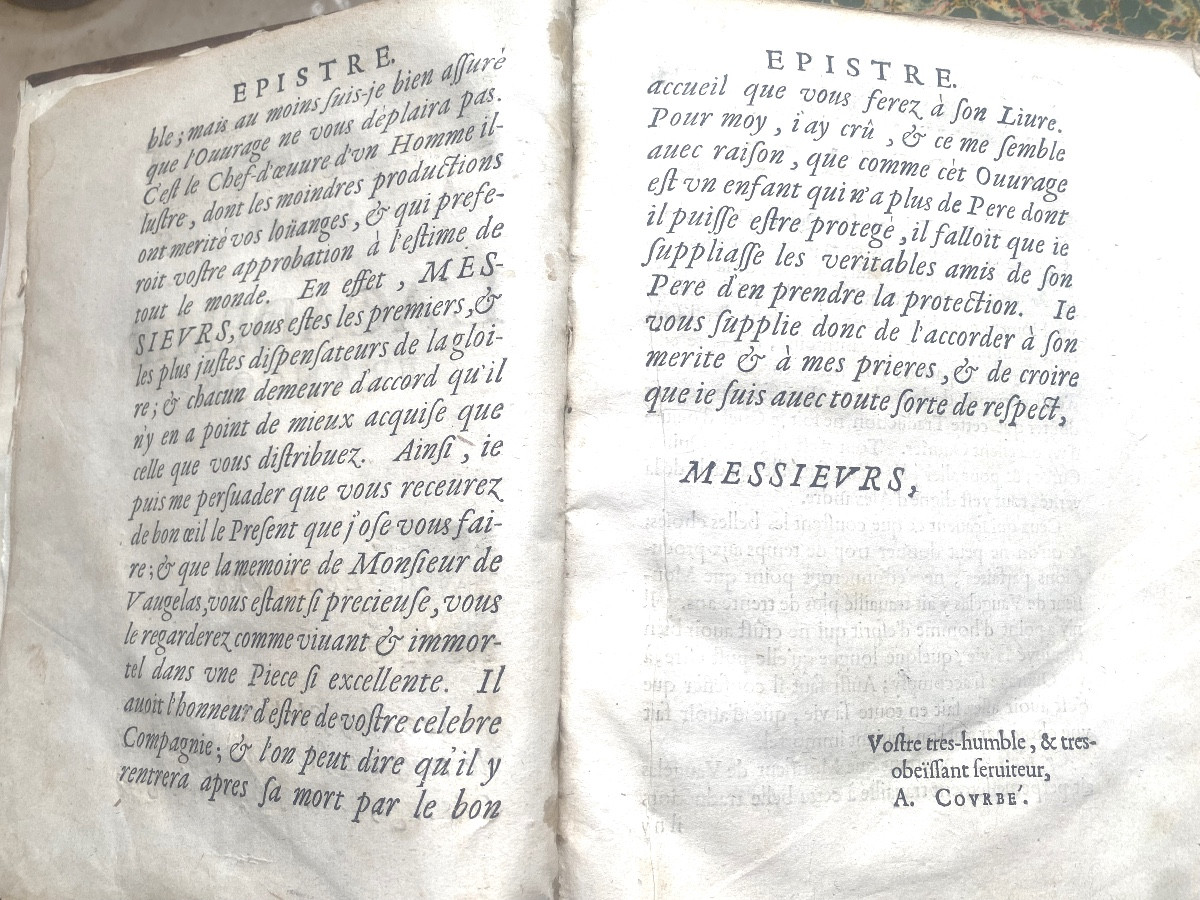 EPISTRE.
ble ; mais au moins ſuis-je bien aſſuré
que l'Ouurage ne vous déplaira pas.
C'eſt le Chef-d'œuure d'vn Homme il-
luſtre, dont les moindres productions
ont merité vos loüanges, & qui prefe-
roit voſtre approbation à l'eſtime de
tout le monde. En effet, MES-
SIEVRS, vous eſtes les premiers, &
les plus juſtes diſpenſateurs de la gloi-
re ; & chacun demeure d'accord qu'il
n'y en a point de mieux acquiſe que
celle que vous diſtribuez. Ainſi, ie
puis me perſuader que vous receurez
de bon œil le Preſent que j'oſe vous fai-
re ; & que la memoire de Monſieur de
Vaugelas, vous eſtant ſi precieuſe, vous
le regarderez comme viuant & immor-
tel dans vne Piece ſi excellente. Il
auoit l'honneur d'eſtre de voſtre celebre
Compagnie ; & l'on peut dire qu'il y
rentrera apres ſa mort par le bon
EPISTRE.
accueil que vous ferez à ſon Liure.
Pour moy, i'ay crû, & ce me ſemble
auec raiſon, que comme cèt Ouurage
eſt vn enfant qui n'a plus de Pere dont
il puiſſe eſtre protegé, il falloit que ie
ſuppliaſſe les veritables amis de ſon
Pere d'en prendre la protection. Ie
vous ſupplie donc de l'accorder à ſon
merite & à mes prieres, & de croire
que ie ſuis auec toute ſorte de reſpect,
MESSIEVRS,
Voſtre tres-humble, & tres-
obeïſſant ſeruiteur,
A. COVRBÉ.